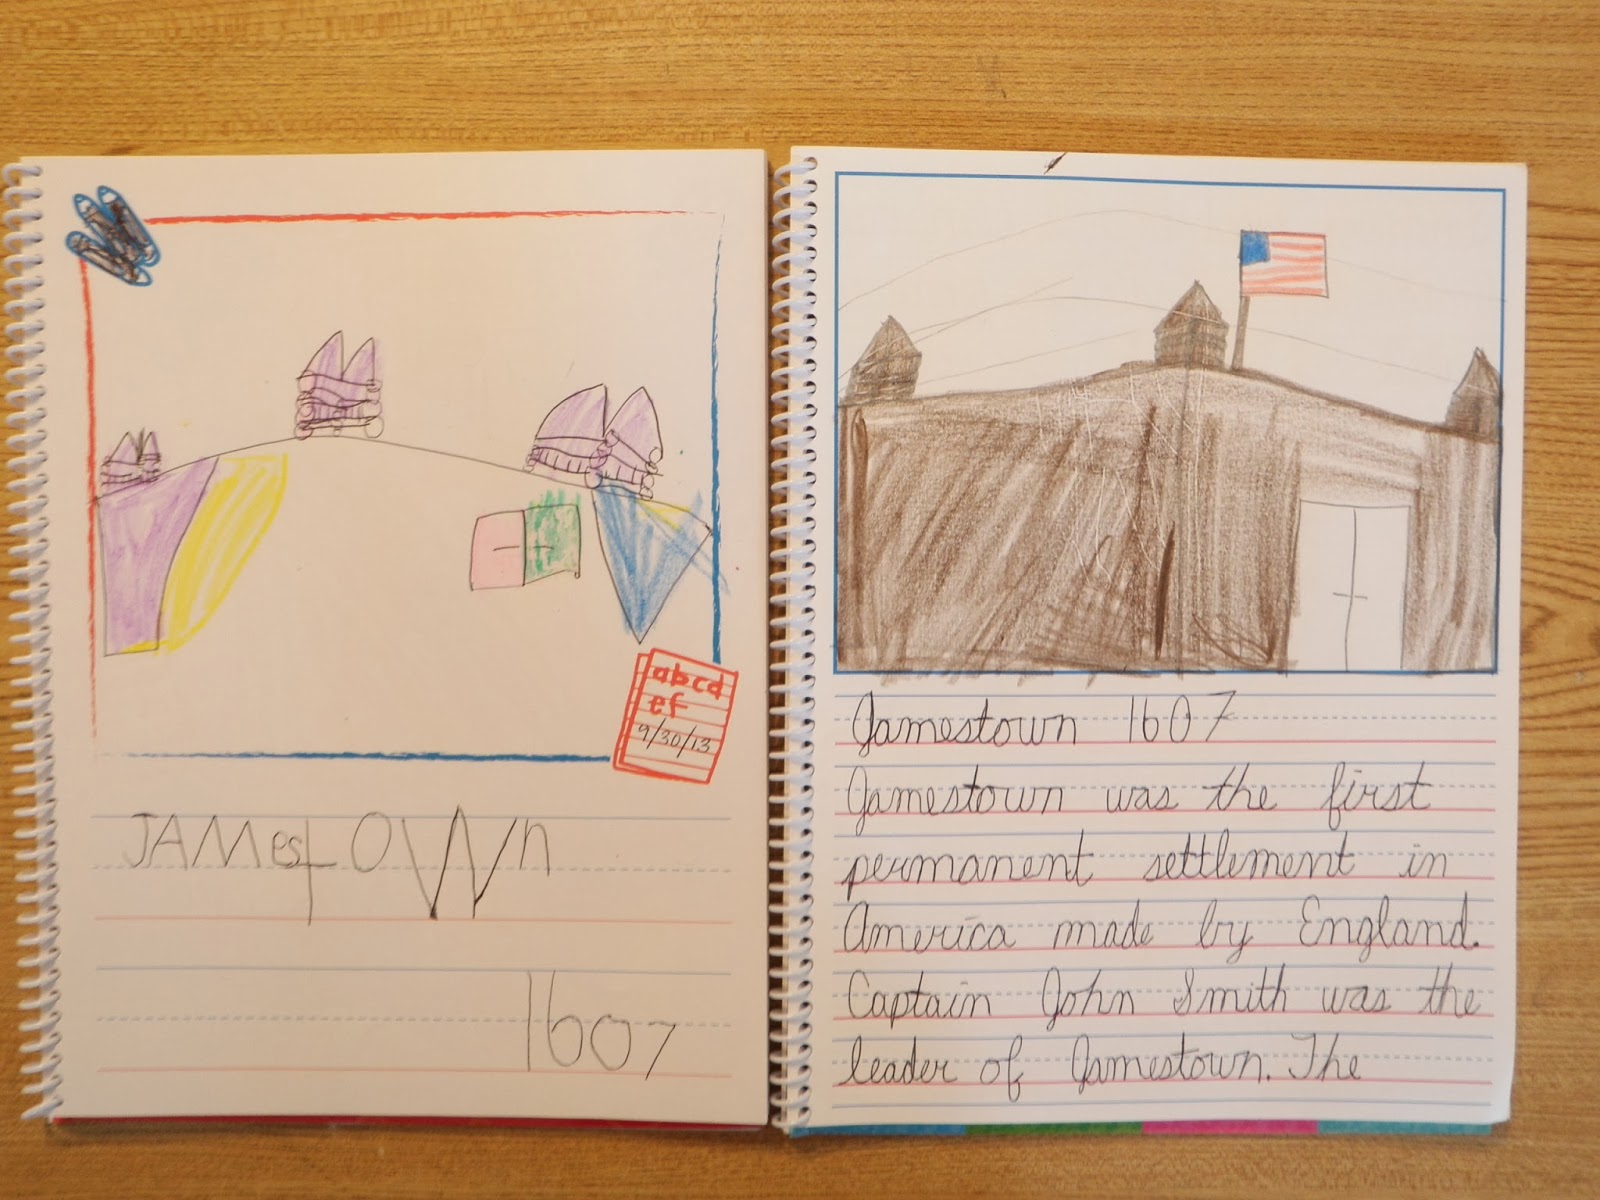 abcd
ef
9/30/13
JAMestOWn
1607
Jamestown 1607
Jamestown was the first
permanent settlement in
America made by England.
Captain John Smith was the
leader of Jamestown. The